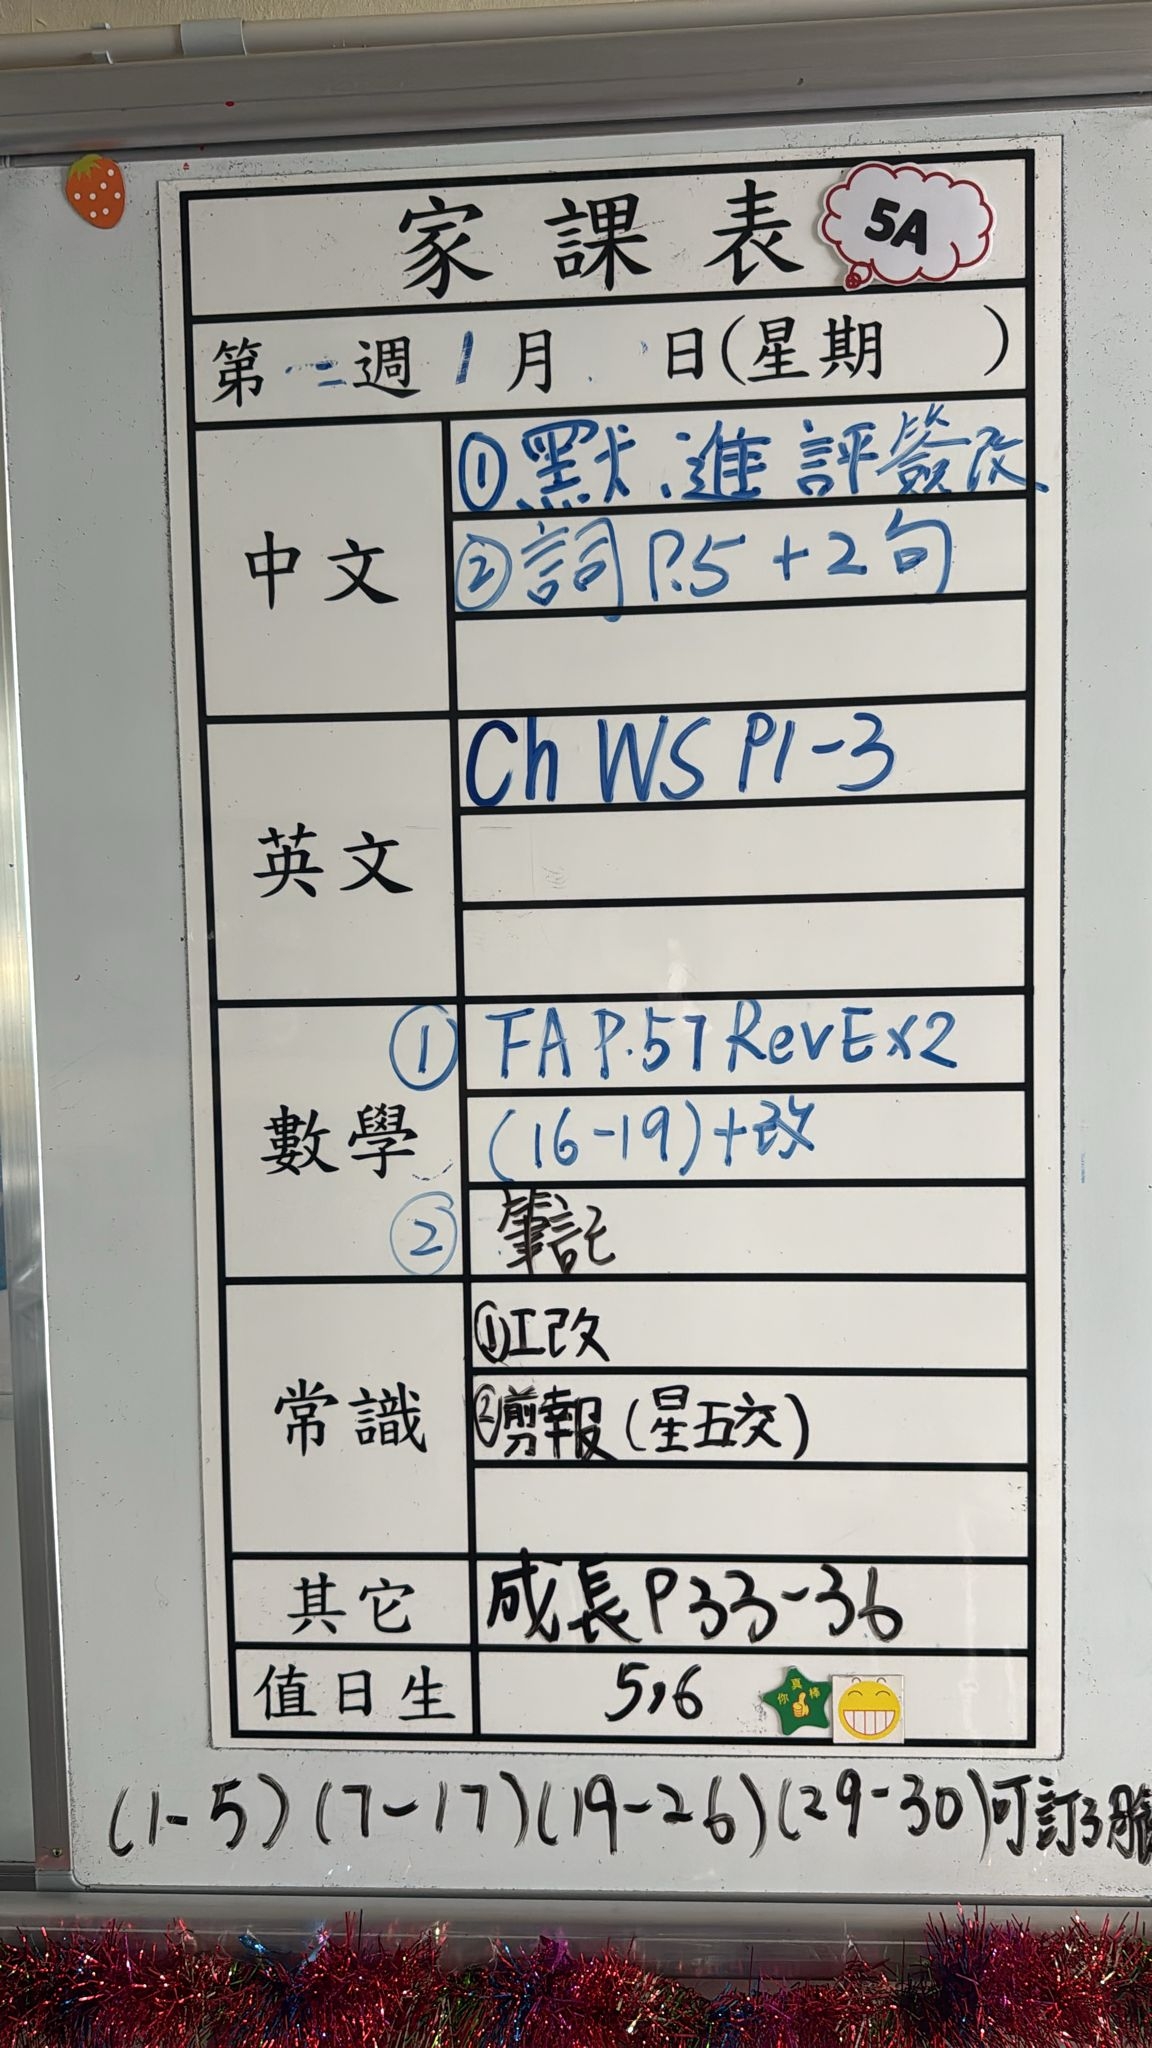 家課表 5A
第二週 1月 日(星期 )
中文
①默、進評簽改
②詞 P.5 + 2句
英文
Ch WS P1-3
數學
① FA P.57 Rev Ex2
(16-19)+改
② 筆記
常識
①工改
②剪報(星五交)
其它
成長 P33-36
值日生
5,6
你真棒
(1-5)(7-17)(19-26)(29-30)可訂3月